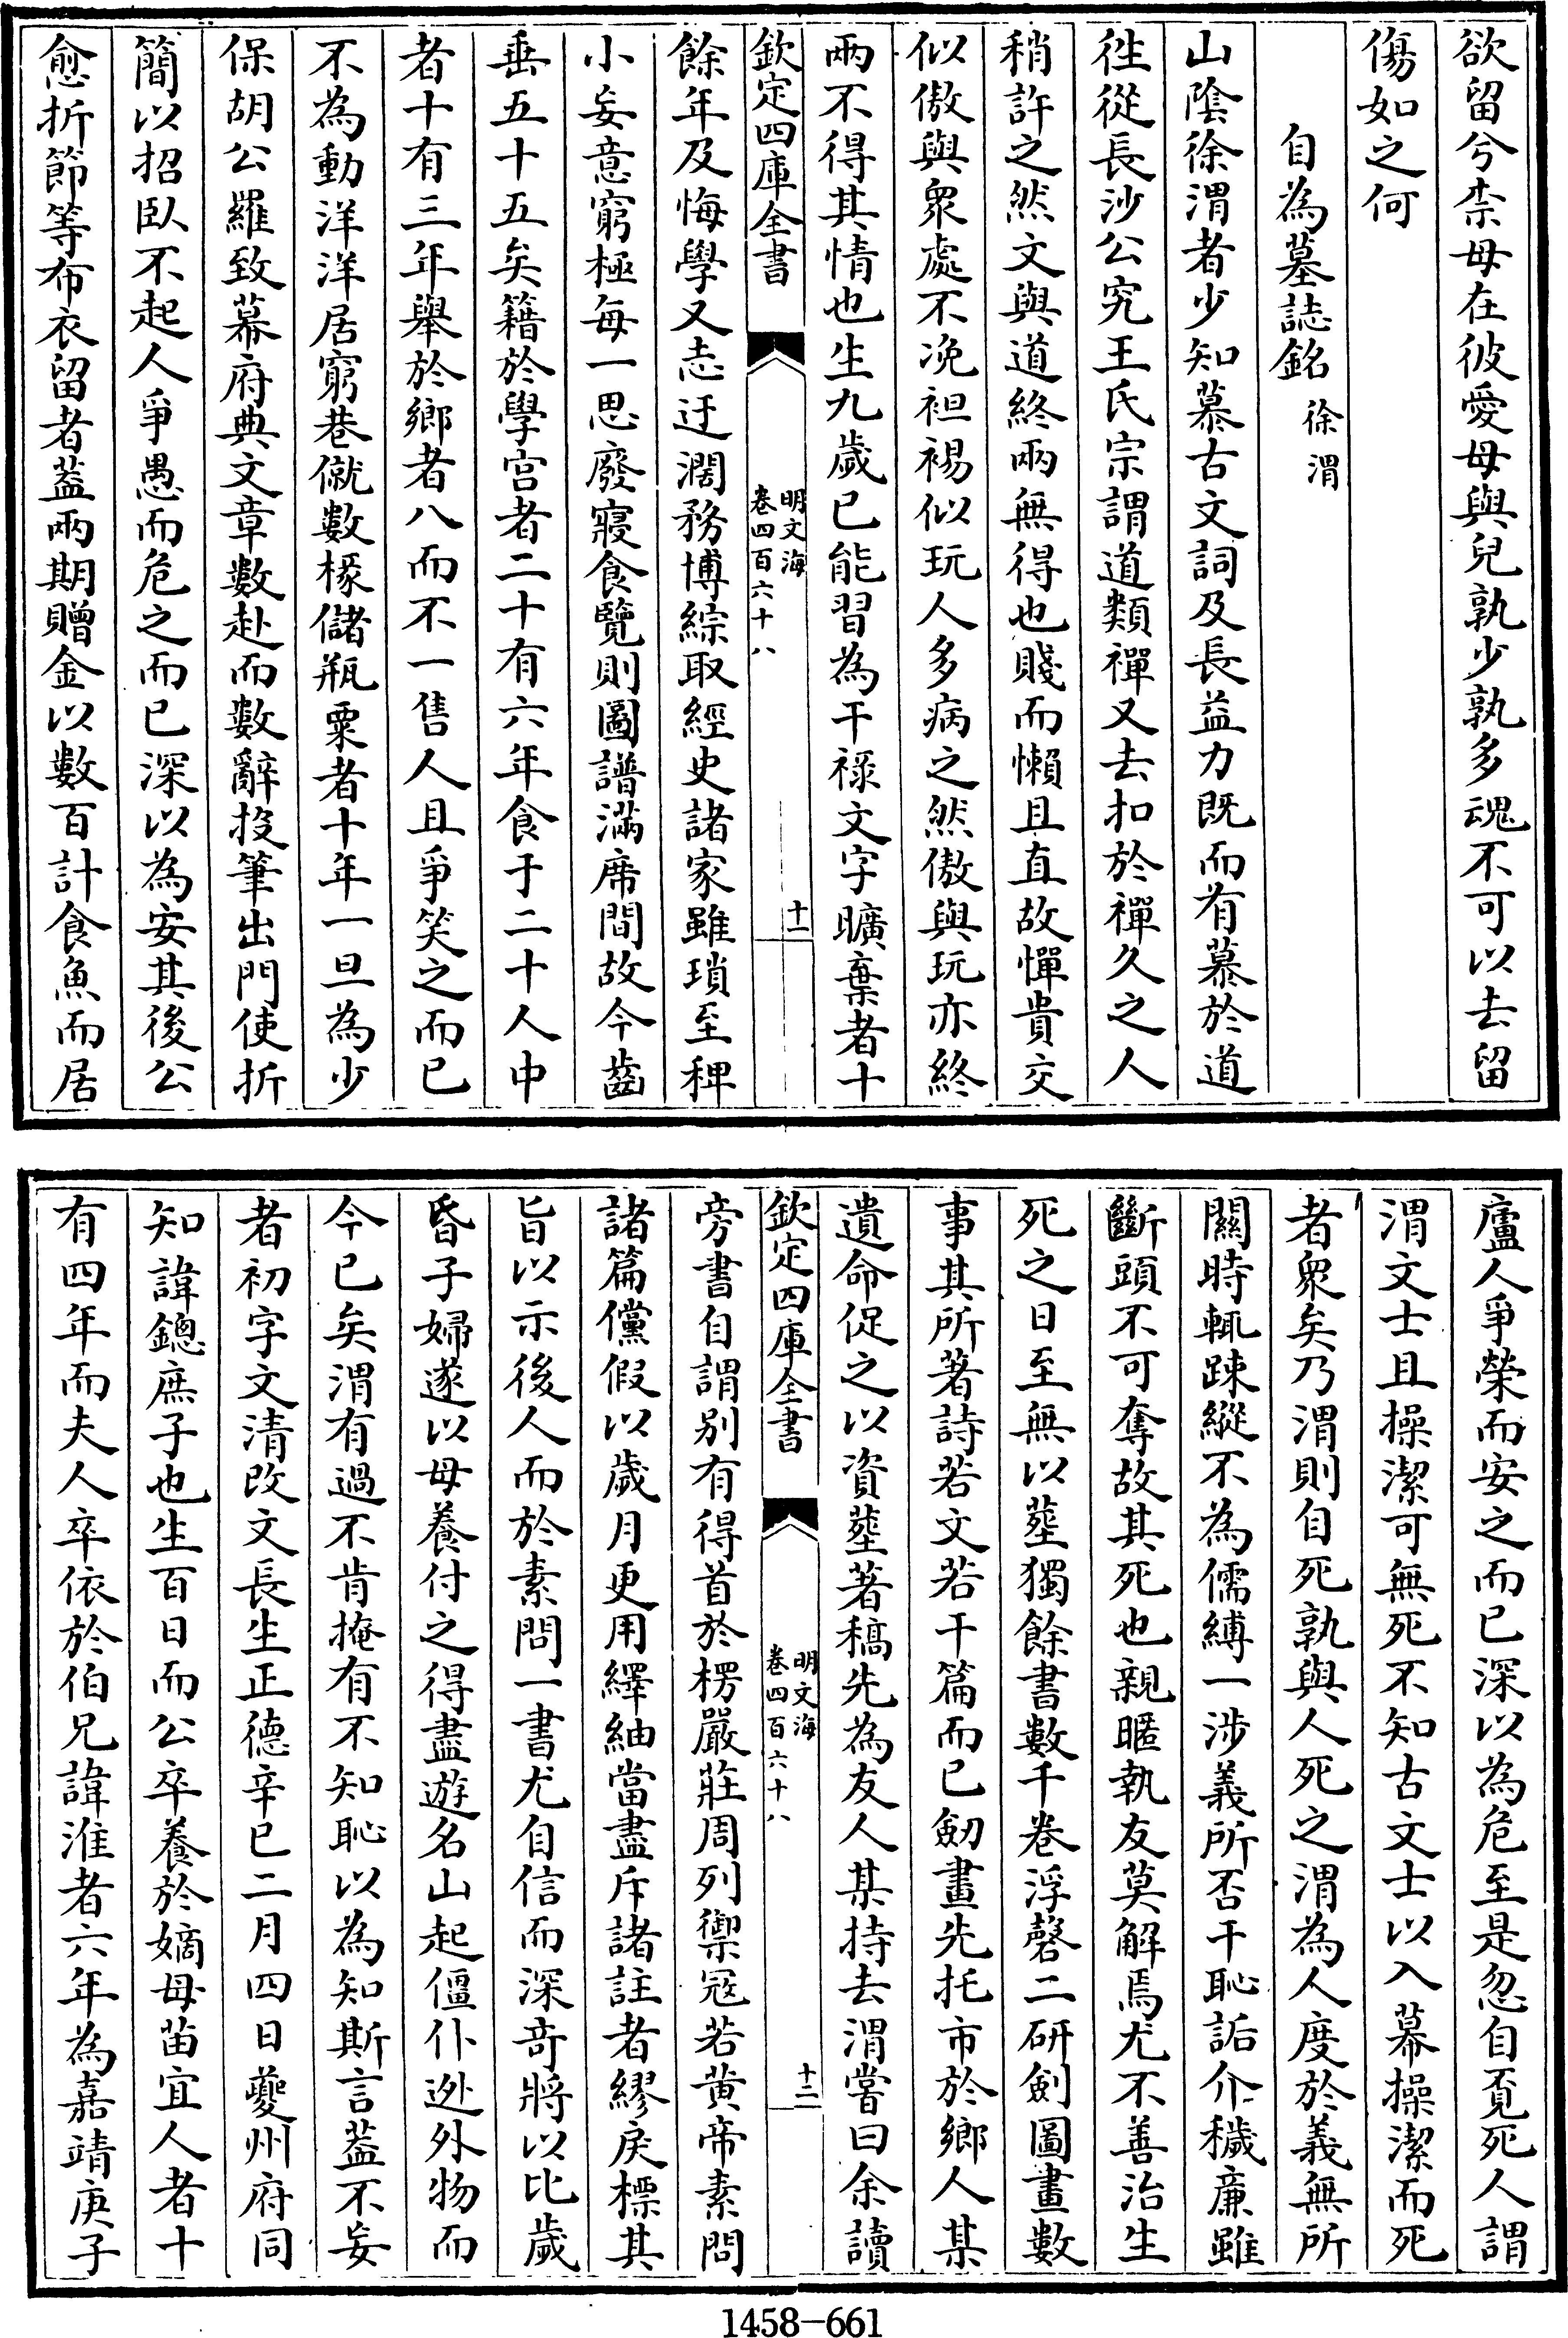 欲留兮柰母在彼愛母與兒孰少孰多魂不可以去留
傷如之何
自為墓誌銘 徐渭
山陰徐渭者少知慕古文詞及長益力既而有慕於道
徃從長沙公究王氏宗謂道類禪又去扣於禪久之人
稍許之然文與道終兩無得也賤而懶且直故憚貴交
似傲與衆處不浼袒裼似玩人多病之然傲與玩亦終
兩不得其情也生九歲已能習為干祿文字曠棄者十
欽定四庫全書
明文海
卷四百六十八
十一
餘年及悔學又志迂濶務博綜取經史諸家雖瑣至稗
小妄意窮極每一思廢寢食覽則圖譜滿席間故今齒
垂五十五矣籍於學宫者二十有六年食于二十人中
者十有三年舉於鄉者八而不一售人且爭笑之而已
不為動洋洋居窮巷僦數椽儲瓶粟者十年一旦為少
保胡公羅致幕府典文章數赴而數辭投筆出門使折
簡以招卧不起人爭愚而危之而已深以為安其後公
愈折節等布衣留者葢兩期贈金以數百計食魚而居
廬人爭榮而安之而已深以為危至是忽自覔死人謂
渭文士且操潔可無死不知古文士以入幕操潔而死
者衆矣乃渭則自死孰與人死之渭為人度於義無所
關時輒踈縱不為儒縛一涉義所否干恥詬介穢廉雖
斷頭不可奪故其死也親暱執友莫解焉尤不善治生
死之日至無以塟獨餘書數千卷浮磬二研劍圖畫數
事其所著詩若文若干篇而已劔畫先托市於鄉人某
遺命促之以資塟著稿先為友人某持去渭嘗曰余讀
欽定四庫全書
明文海
卷四百六十八
十二
旁書自謂别有得首於楞嚴莊周列禦冦若黄帝素問
諸篇儻假以歲月更用繹紬當盡斥諸註者繆戾標其
旨以示後人而於素問一書尤自信而深竒將以比歲
昏子婦遂以母養付之得盡遊名山起僵仆逊外物而
今已矣渭有過不肯掩有不知恥以為知斯言葢不妄
者初字文清改文長生正德辛巳二月四日夔州府同
知諱鏓庶子也生百日而公卒養於嫡母苗宜人者十
有四年而夫人卒依於伯兄諱淮者六年為嘉靖庚子
1458-661